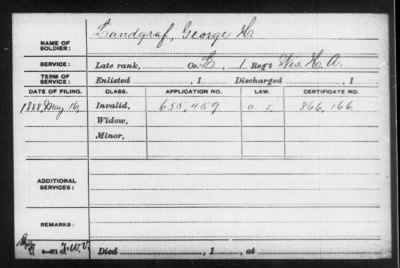 NAME OF SOLDIER: Landgraf, George H
SERVICE: Late rank, Co. L, 1 Reg't H. A.
TERM OF SERVICE: Enlisted , 1 Discharged , 1
DATE OF FILING. CLASS. APPLICATION NO. LAW. CERTIFICATE NO.
1888, May 16, Invalid, 655,459 866,166
Widow,
Minor,
ADDITIONAL SERVICES:
REMARKS:
Died , 1 , at